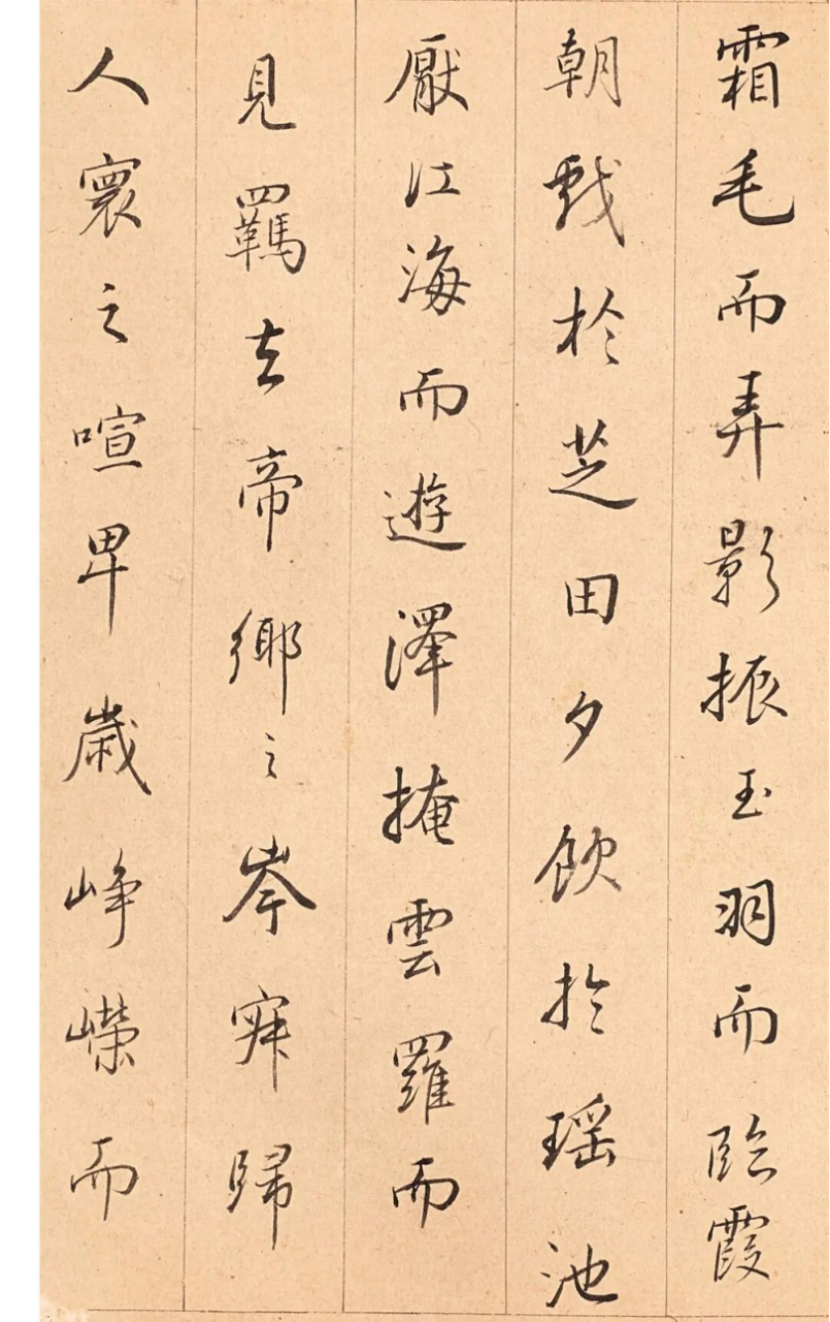 霜毛而弄影振玉羽而臨霞
朝戲於芝田夕飲於瑤池
厭江海而遊澤掩雲羅而
見羈去帝鄉之岑寂歸
人寰之喧卑歲崢嶸而